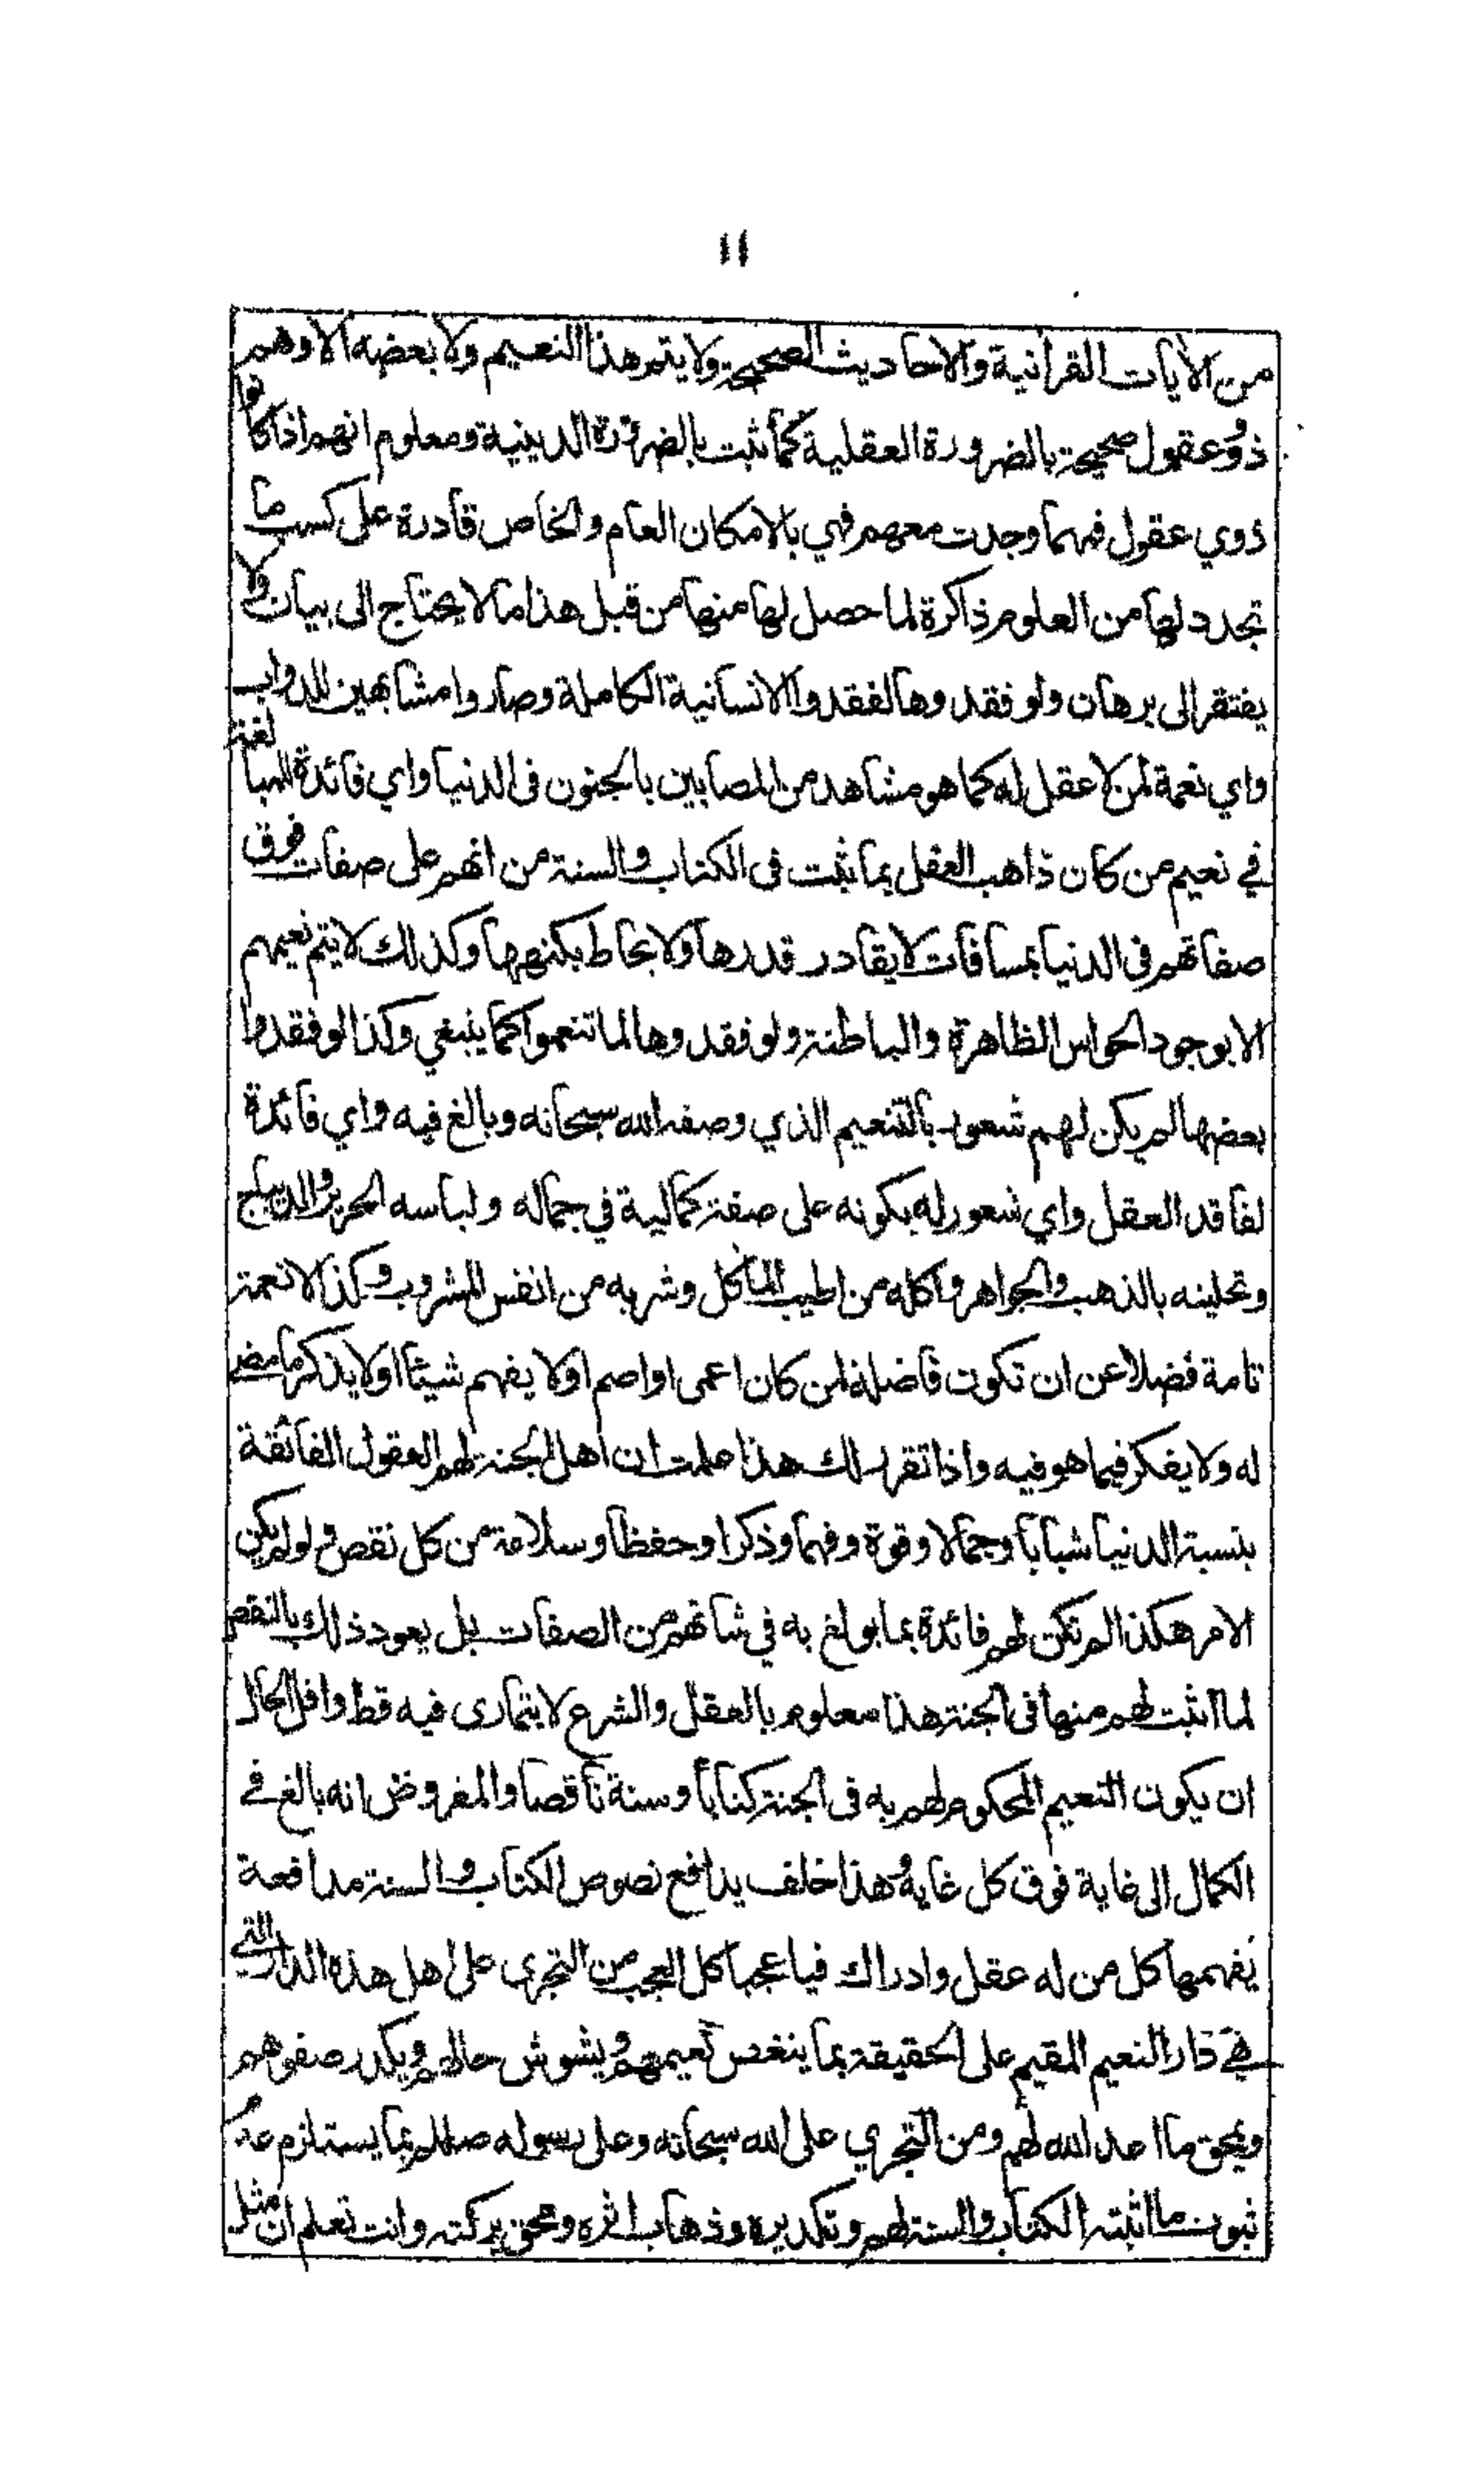 ١١
من الآيات القرآنية والاحاديث الصحيحة ولا يتم هذا النعيم ولا بعضه الا وهم
ذوو عقول صحيحة بالضرورة العقلية كما ثبت بالضرورة الدينية ومعلوم انهم اذا كانوا
ذوي عقول فمهما وجدت معهم فهي بالامكان العام والخاص قادرة على كسب ما
تجدد لها من العلوم ذاكرة لما حصل لها منها من قبل هذا ما لا يحتاج الى بيان ولا
يفتقر الى برهان ولو فقدوها لفقدوا الانسانية الكاملة وصاروا مشابهين للدواب
واي نعمة لمن لا عقل له كما هو مشاهد من المصابين بالجنون فى الدنيا واي فائدة للمبالغة
في نعيم من كان ذاهب العقل بما ثبت فى الكتاب والسنة من انهم على صفات فوق
صفاتهم فى الدنيا بمسافات لا يقادر قدرها ولا يحاط بكنهها وكذلك لا يتم نعيمهم
الا بوجود الحواس الظاهرة والباطنة ولو فقدوها لما تنعموا كما ينبغي وكذا لو فقدوا
بعضها لم يكن لهم شعور بالتنعيم الذي وصفه الله سبحانه وبالغ فيه واي فائدة
لفاقد العقل واي شعور له بكونه على صفة كمالية في جماله ولباسه الحرير والديباج
وتحليته بالذهب والجواهر واكله من اطيب المآكل وشربه من انفس المشروب وكذا لا نعمة
تامة فضلا عن ان تكون فاضلة لمن كان اعمى او اصم او لا يفهم شيئا او لا يذكر ما مضى
له ولا يفكر فيما هو فيه واذا تقرر لك هذا علمت ان اهل الجنة لهم العقول الفائقة
بنسبة الدنيا شبابا وجمالا وقوة وفهما وذكرا وحفظا وسلامة من كل نقص ولو لم يكن
الامر هكذا لم تكن لهم فائدة بما بولغ به في شأنهم من الصفات بل يعود ذلك بالنقص
لما اثبت لهم منها فى الجنة هذا معلوم بالعقل والشرع لا يتمارى فيه قط واقل الحال
ان يكون النعيم المحكوم لهم به فى الجنة كتابا وسنة ناقصا والمفروض انه بالغ في
الكمال الى غاية فوق كل غاية وهذا خلف يدافع نصوص الكتاب والسنة مدافعة
يفهمها كل من له عقل وادراك فيا عجبا كل العجب من التجري على اهل هذه الدار التي
هي دار النعيم المقيم على الحقيقة بما ينغص نعيمهم ويشوش حالهم ويكدر صفوهم
ويمحق ما اعد الله لهم ومن التجري على الله سبحانه وعلى رسوله صللم بما يستلزم عدم
ثبوت ما اثبته الكتاب والسنة لهم وتكديره وذهاب اثره ومحق بركته وانت تعلم ان مثل